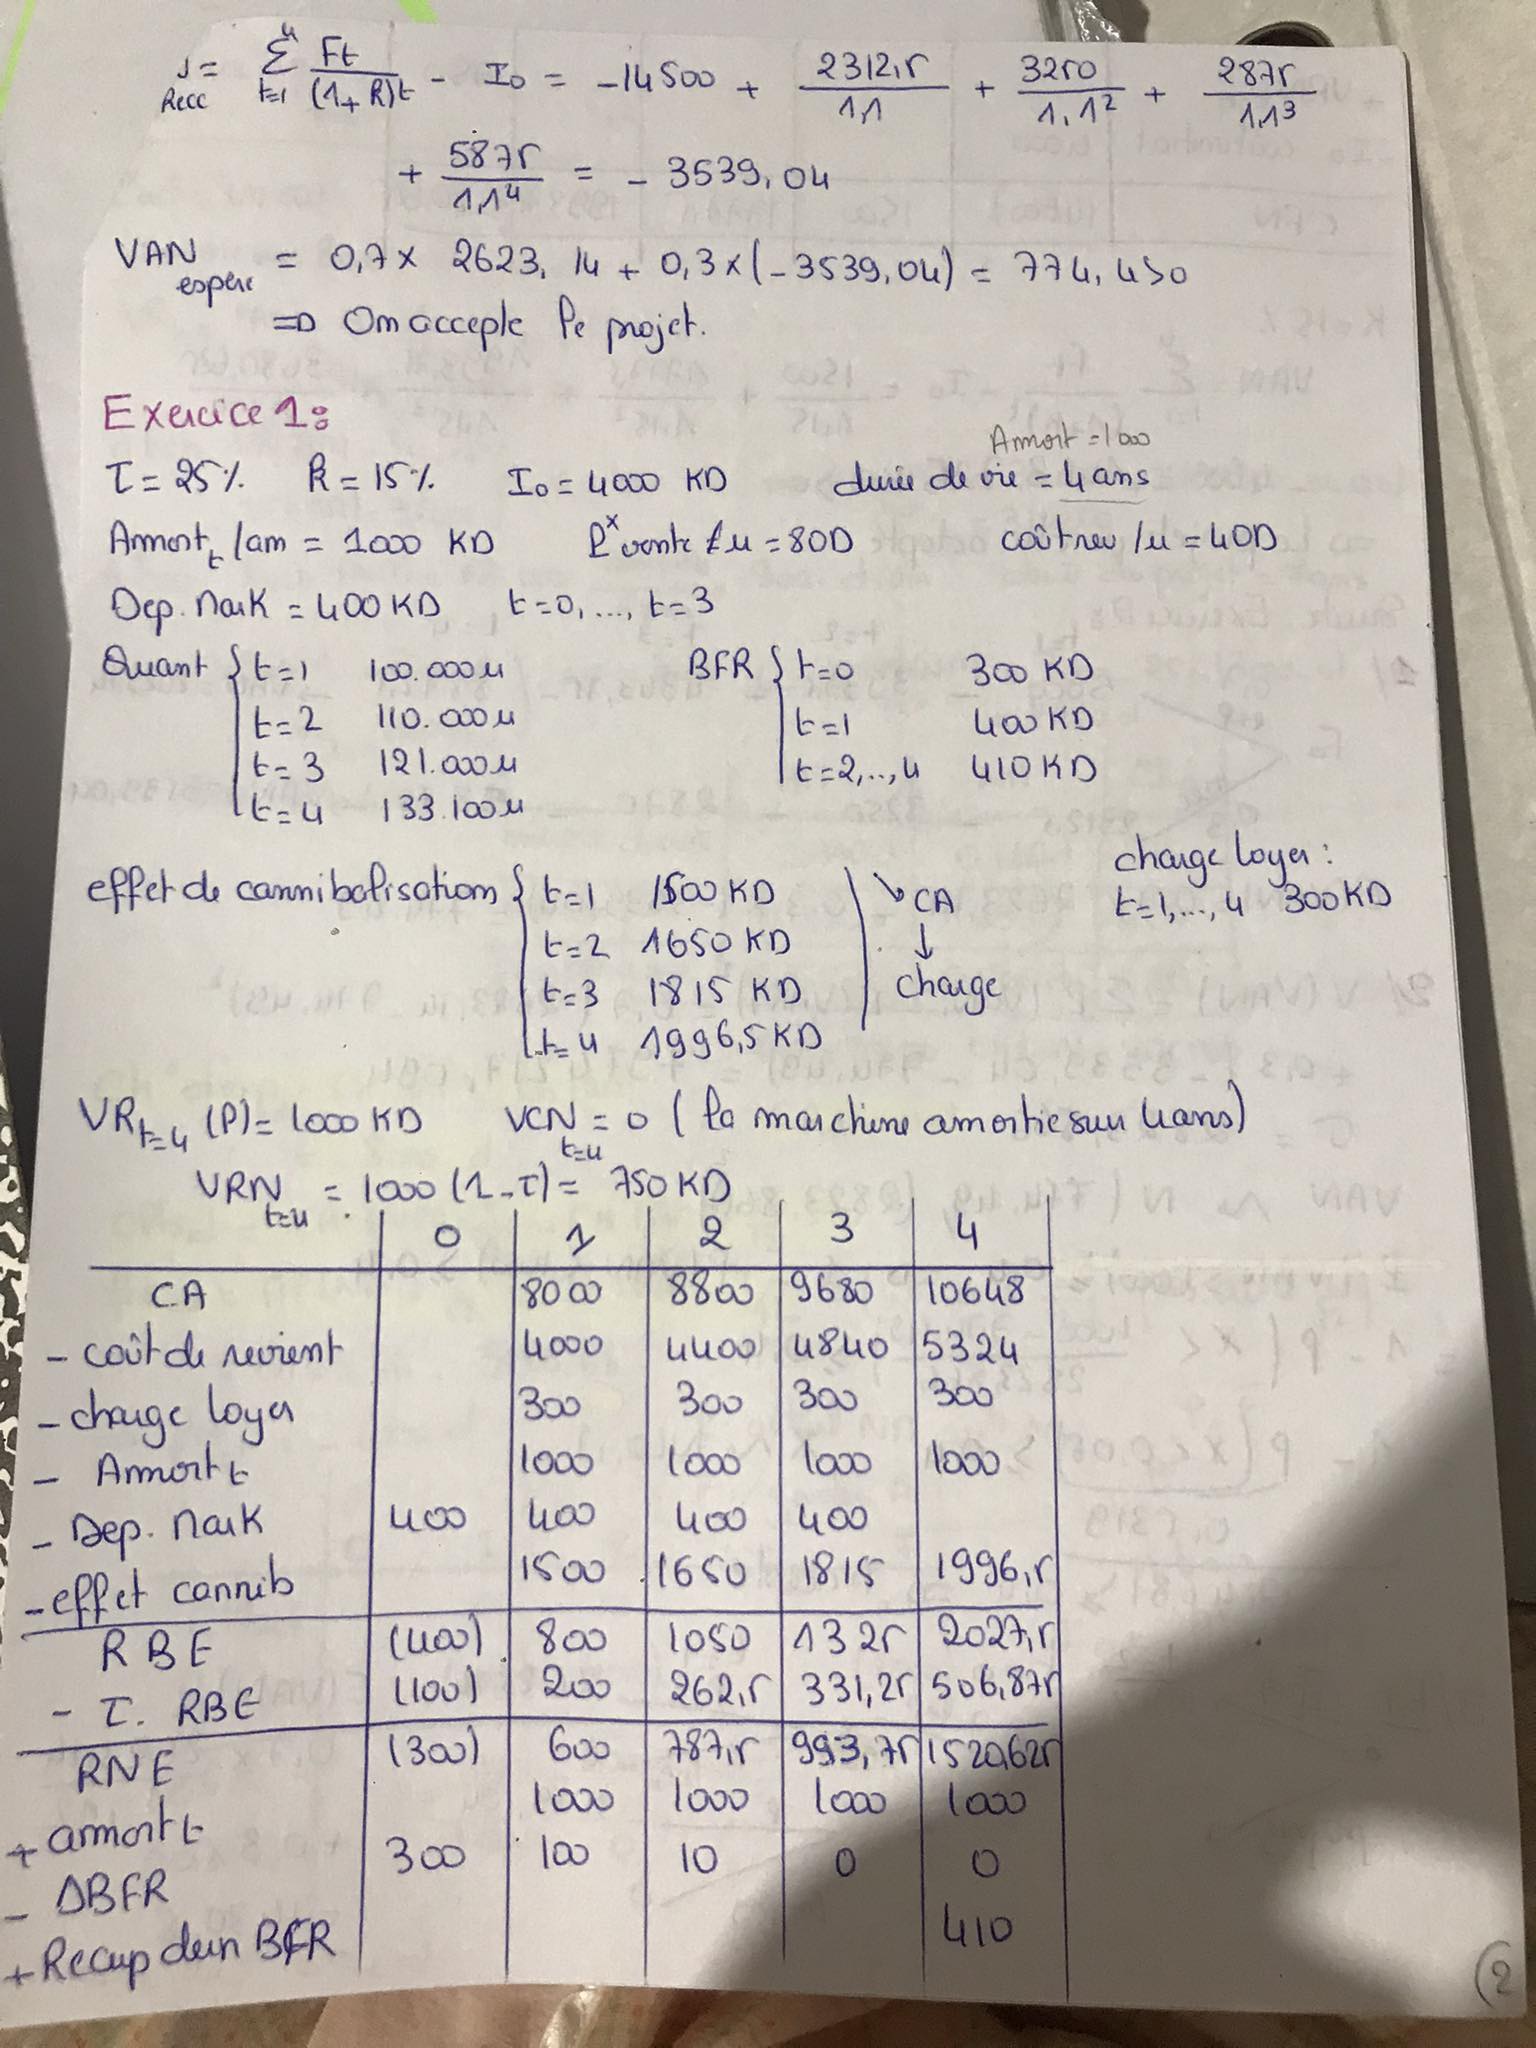 J Recc = Σ⁴t=1 Ft/(1+R)t - I0 = -14500 + 2312,5/1,1 + 3250/1,1² + 2875/1,1³
+ 5875/1,1⁴ = - 3539,04
VAN espéré = 0,7 x 2623,14 + 0,3 x (-3539,04) = 774,450
=> On accepte le projet.
Exercice 1:
Amort = 1000
τ = 25% R = 15% I0 = 4000 KD durée de vie = 4 ans
Amort t /an = 1000 KD Px vente /u = 80D coût rev /u = 40D
Dep. Mark = 400 KD t=0, ..., t=3
Quant { t=1 100.000u BFR { t=0 300 KD
t=2 110.000u t=1 400 KD
t=3 121.000u t=2,..,4 410 KD
t=4 133.100u
charge loyer :
effet de cannibalisation { t=1 1500 KD ↘ CA t=1,...,4 300KD
t=2 1650 KD ↓
t=3 1815 KD charge
t=4 1996,5 KD
VR t=4 (P) = 1000 KD VCN t=4 = 0 (la marchine amortie sur 4ans)
VRN t=4 = 1000 (1-τ) = 750 KD
0 1 2 3 4
CA 8000 8800 9680 10648
- coût de revient 4000 4400 4840 5324
- charge loyer 300 300 300 300
- Amort t 1000 1000 1000 1000
- Dep. Mark 400 400 400 400
- effet cannib 1500 1650 1815 1996,5
RBE (400) 800 1050 1325 2027,5
- τ. RBE (100) 200 262,5 331,25 506,875
RNE (300) 600 787,5 993,75 1520,625
+ amort t 1000 1000 1000 1000
- ΔBFR 300 100 10 0 0
+ Recup deun BFR 410
2